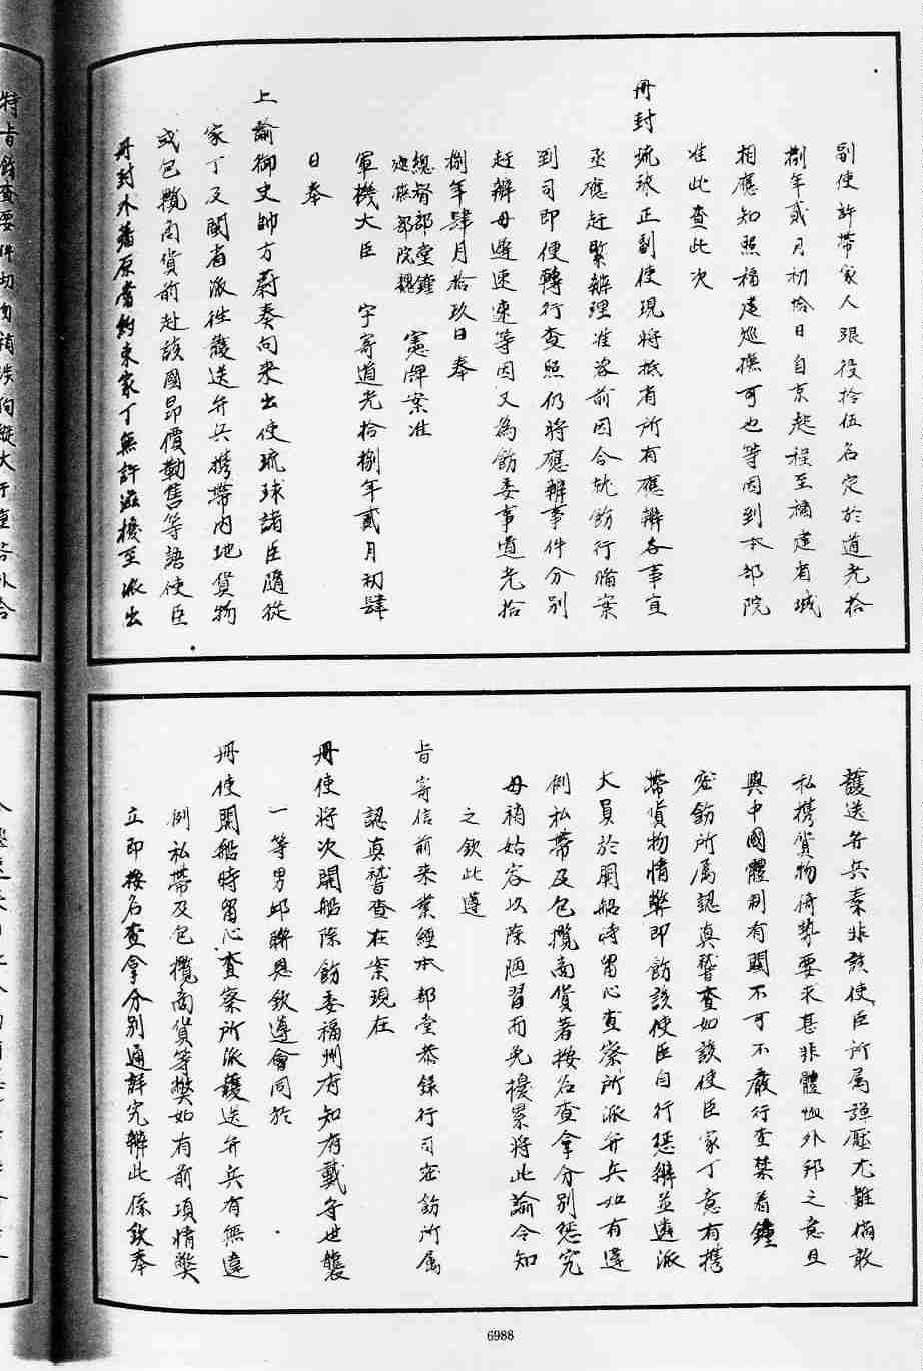 副使許帶家人跟役拾伍名定於道光拾
捌年貳月初拾日自京起程至福建省城
相應知照福建巡撫可也等因到本部院
准此查此次
冊封琉球正副使現將抵省所有應辦各事宜
亟應赶緊辦理准咨前因合就飭行備案
到司即便轉行查照仍將應辦事件分別
赶辦毋遲速速等因又為飭委事道光拾
捌年肆月拾玖日奉
總督部堂鍾
巡撫部院魏
憲牌案准
軍機大臣 字寄道光拾捌年貳月初肆
日奉
上諭御史帥方蔚奏向來出使琉球諸臣隨從
家丁及閩省派往護送弁兵携帶內地貨物
或包攬商貨前赴該國昂價勒售等語使臣
冊封外藩原當約束家丁無許滋擾至派出
護送弁兵秦非該使臣所屬彈壓尤難倘敢
私携貨物倚勢要求甚非體恤外邦之意且
與中國體制有關不可不嚴行查禁着鍾
密飭所属認真督查如該使臣家丁意有携
帶貨物情弊即飭該使臣自行懲辦並遴派
大員於開船時留心查察所派弁兵如有違
例私帶及包攬商貨著按名查拿分別懲究
毋稍姑容以除陋習而免擾累將此諭令知
之欽此遵
旨寄信前來業經本部堂恭錄行司密飭所属
認真督查在案現在
冊使將次開船除飭委福州府知府戴 世襲
一等男邱聯恩欽遵會同於
冊使開船時留心查察所派護送弁兵有無違
例私帶及包攬商貨等弊如有前項情弊
立即按名查拿分別通詳究辦此係欽奉
6988